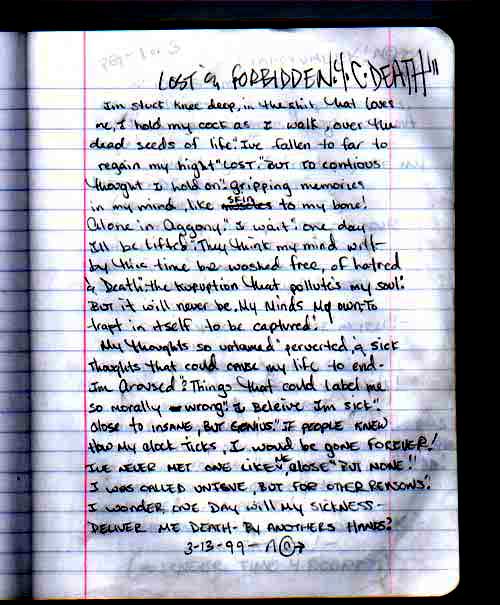 LOST & FORBIDDEN. C. DEATH"
Im stuck knee deep, in the shit that loves
me, I hold my cock as I walk, over the
dead seeds of life". Ive fallen to far to
regain my hight "LOST." BUT TO contious
thought I hold on". gripping memories
in my mind, like SKIN to my bone!
Alone in Aggony". I wait". one day
I'll be lifted". They think my mind will-
by this time be washed free, of hatred
& Death. the kuruption that pollute's my soul.
BUT it will never be. My Minds My own-To
trapt in itself to be captured!
My thoughts so untamed perverted, & sick
thoughts that could cause my life to end-
Im Aroused? Things that could label me
so morally wrong" I Beleive Im sick".
Close to INSANE, BUT GENIUS." IF PEOPLE KNEW
How My clock Ticks, I would be gone FOREVER!
IVE NEVER MET ONE LIKE ME, close" BUT NONE!!
I WAS CALLED UNIQUE, BUT FOR OTHER REASONS!
I WONDER, ONE DAY will My SICKNESS-
DELIVER ME DEATH- By ANOTHERS HANDS?
3-13-99-